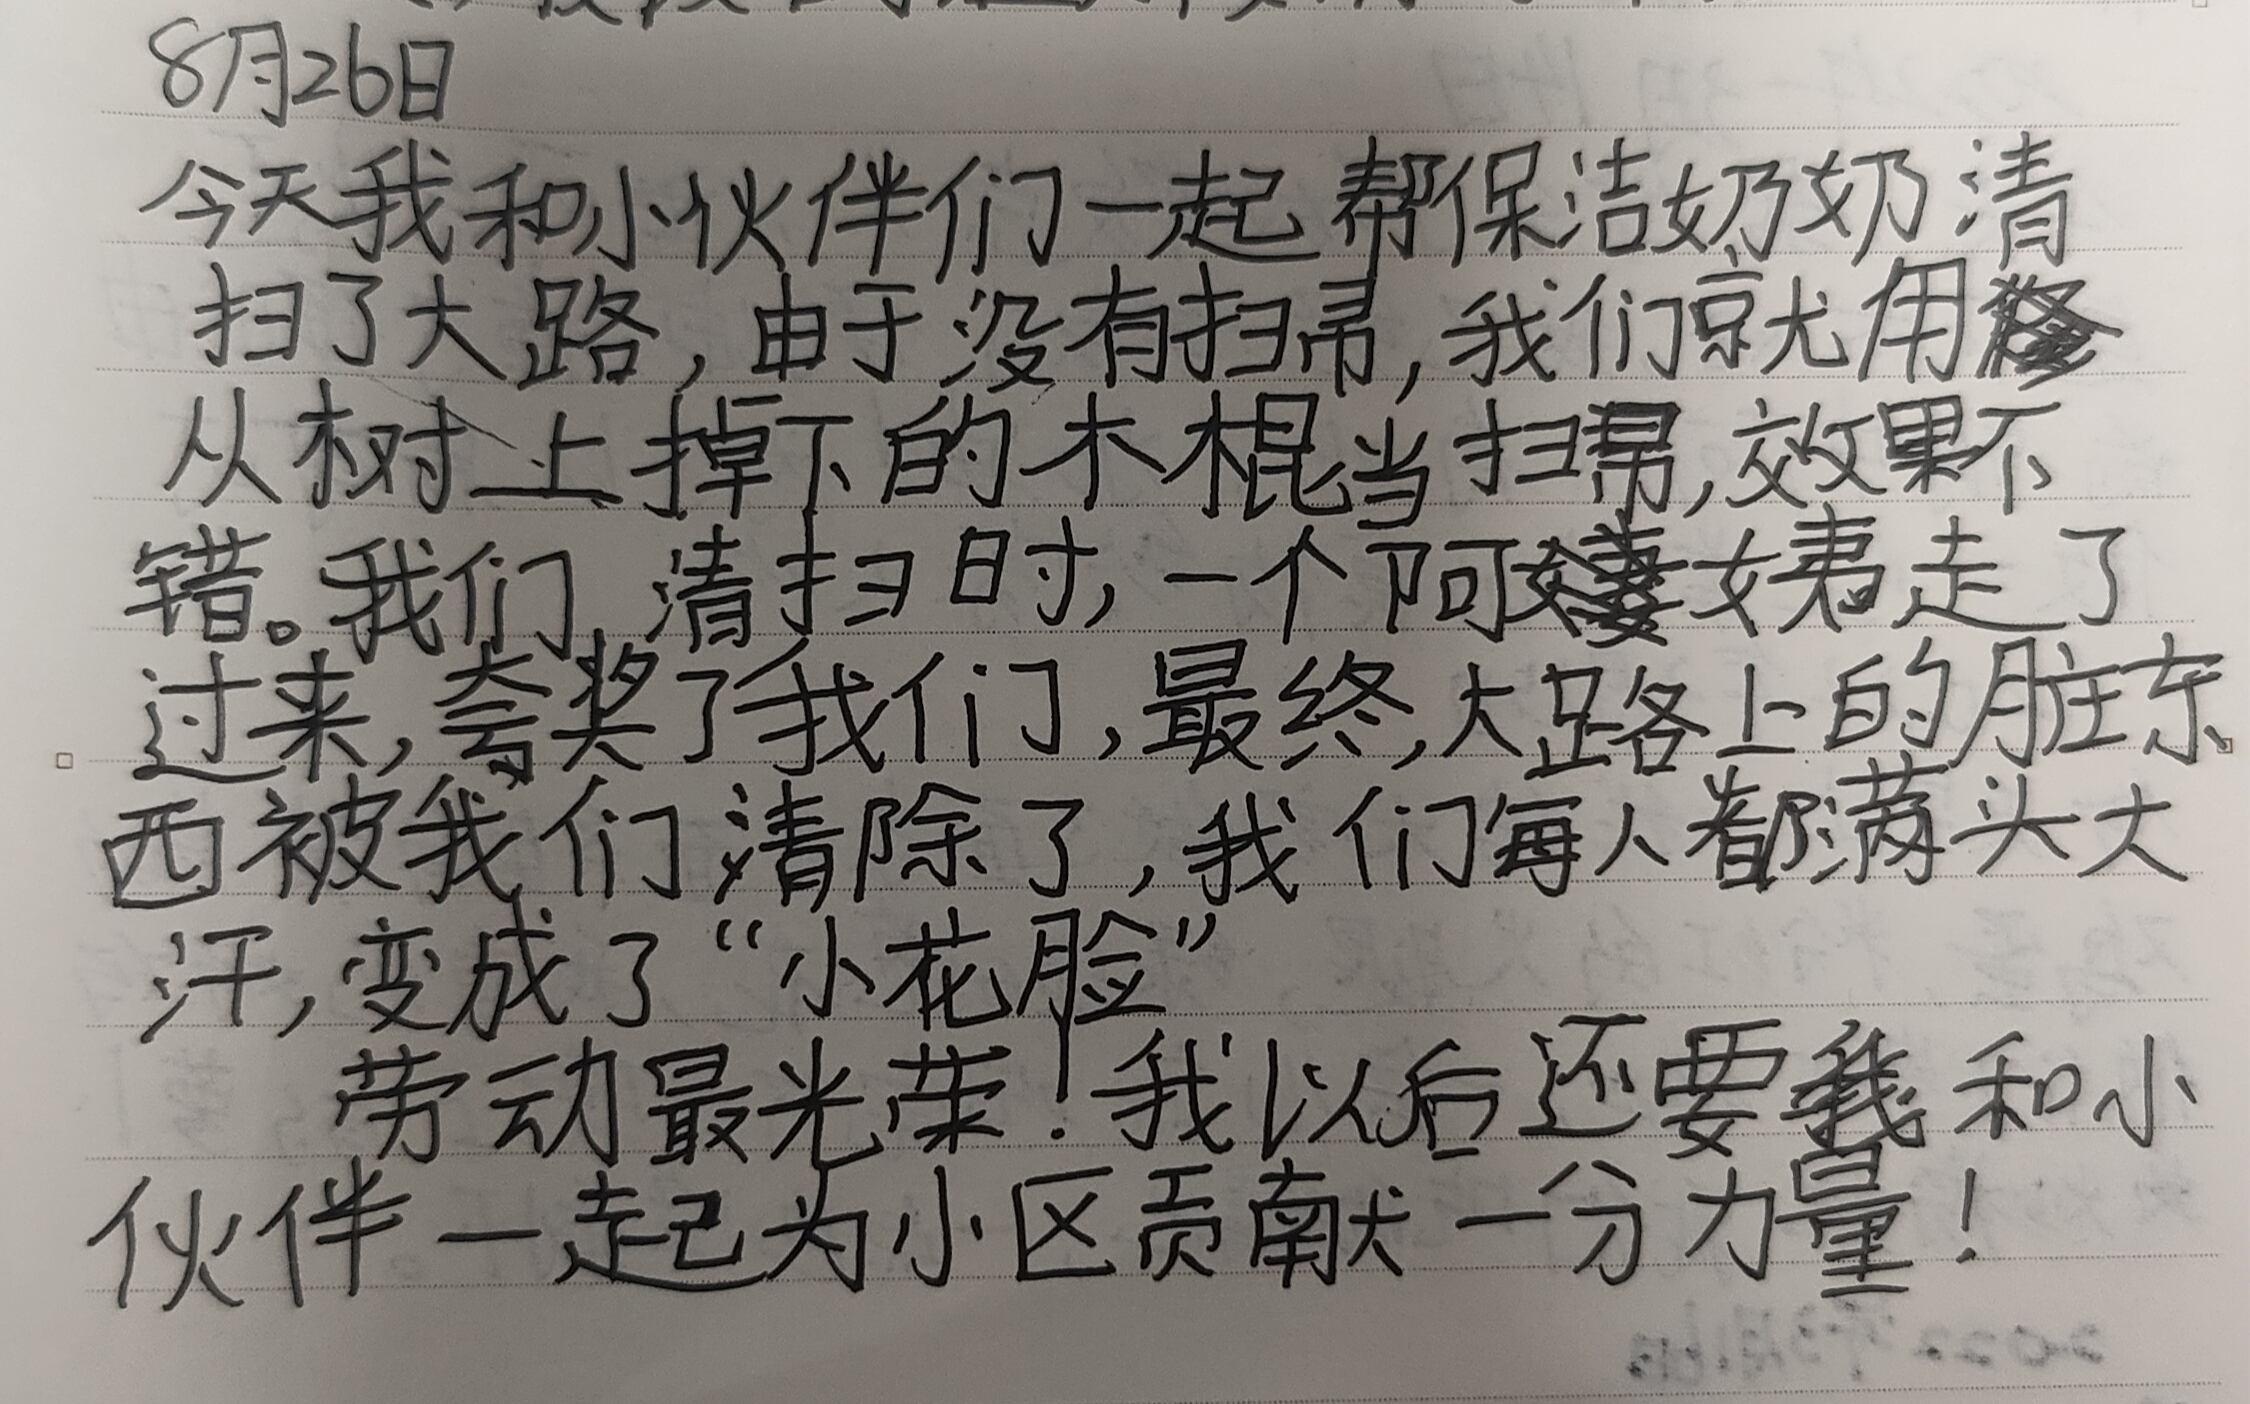 8月26日
今天我和小伙伴们一起帮保洁奶奶清
扫了大路,由于没有扫帚,我们就用
从树上掉下的木棍当扫帚,效果不
错。我们清扫时,一个阿姨走了
过来,夸奖了我们,最终,大路上的脏东
西被我们清除了,我们每人都满头大
汗,变成了“小花脸”
劳动最光荣!我以后还要我和小
伙伴一起为小区贡献一分力量!